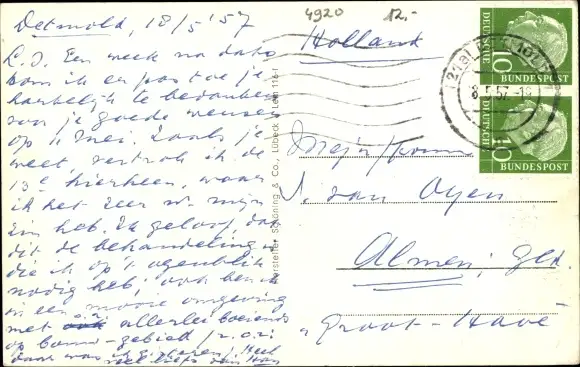 Detmold, 18/5 '57
4920
12.-
Holland
L.J. Een week na dato
kom ik er pas toe je
hartelijk te bedanken
voor je goede wensen
op 11 Mei. Zoals je
weet vertrok ik de
13e hierheen, waar
ik het zeer n. mijn
zin heb. Ik geloof, dat
dit de behandeling is
die ik op 't ogenblik
nodig heb; ook ben ik
in een mooie omgeving
met allerlei boeiends
op bouw-gebied
daar was ik gisteren! Heel
veel liefs van
Hersteller Schöning & Co., Lübeck
DEUTSCHE
10
BUNDESPOST
DEUTSCHE
10
BUNDESPOST
(21a)
5.57.-18
Mejuffrouw
J. van Oyen
Almen; Geld.
"Groot-Have"